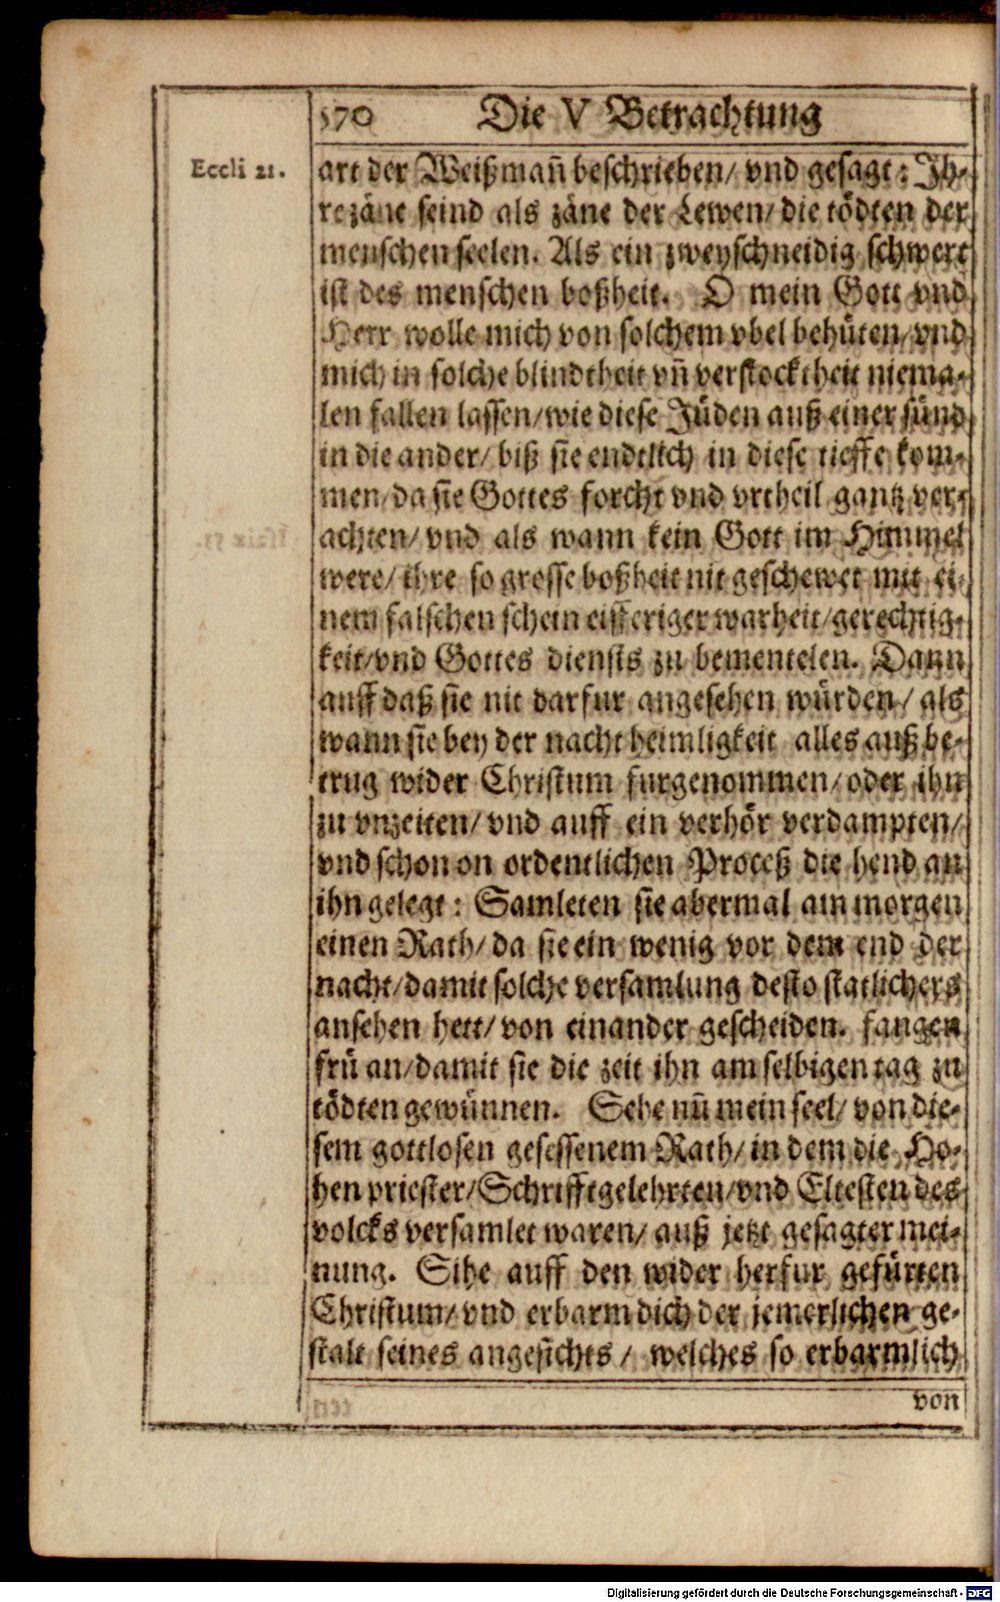 570 Die V Betrachtung
Eccli 21.
art der Weißmañ beschrieben/ vnd gesagt: Ih-
re zäne seind als zäne der Lewen/ die tödten der
menschen seelen. Als ein zweyschneidig schwert
ist des menschen boßheit. O mein Gott vnd
Herr wolle mich von solchem vbel behüten/ vnd
mich in solche blindtheit vñ verstocktheit niema-
len fallen lassen/ wie diese Jüden auß einer sünd
in die ander/ biß sie endtlich in diese tieffe kom-
men/ da sie Gottes forcht vnd vrtheil gantz ver-
achten/ vnd als wann kein Gott im Himmel
were/ ihre so grosse boßheit nit geschewet mit ei-
nem falschen schein eifferiger warheit/ gerechtig-
keit/ vnd Gottes diensts zu bementelen. Dann
auff daß sie nit darfur angesehen würden/ als
wann sie bey der nacht heimligkeit alles auß be-
trug wider Christum furgenommen/ oder ihn
zu vnzeiten/ vnd auff ein verhör verdampten/
vnd schon on ordentlichen Proceß die hend an
ihn gelegt: Samleten sie abermal am morgen
einen Rath/ da sie ein wenig vor dem end der
nacht/ damit solche versamlung desto statlichers
ansehen hett/ von einander gescheiden. fangen
frü an/ damit sie die zeit ihn am selbigen tag zu
tödten gewünnen. Sehe nũ mein seel/ von die-
sem gottlosen gesessenem Rath/ in dem die Ho-
hen priester/ Schrifftgelehrten/ vnd Eltesten des
volcks versamlet waren/ auß jetzt gesagter mei-
nung. Sihe auff den wider herfur gefürten
Christum/ vnd erbarm dich der jemerlichen ge-
stalt seines angesichts/ welches so erbarmlich
von
Digitalisierung gefördert durch die Deutsche Forschungsgemeinschaft - DFG